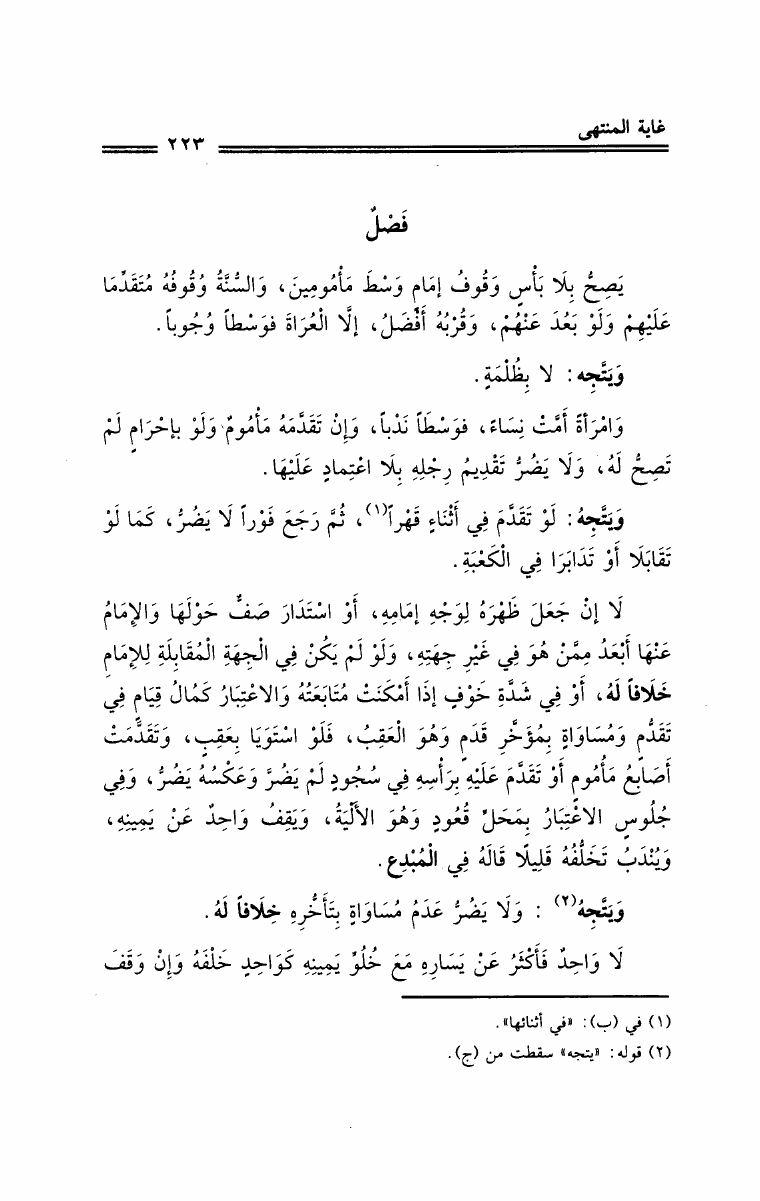 غاية المنتهى
٢٢٣
فَصْلٌ
يَصِحُّ بِلَا بَأْسٍ وَقُوفُ إمَامٍ وَسْطَ مَأْمُومِينَ، وَالسُّنَّةُ وُقُوفُهُ مُتَقَدِّمًا
عَلَيْهِمْ وَلَوْ بَعُدَ عَنْهُمْ، وَقُرْبُهُ أَفْضَلُ، إلَّا الْعُرَاةَ فَوَسْطاً وُجُوباً.
وَيَتَّجِه: لا بِظُلْمَةٍ.
وَامْرَأةً أَمَّتْ نِسَاءً، فوَسْطَاً نَدْباً، وَإِنْ تَقَدَّمَهُ مَأْمُومٌ وَلَوْ بإحْرَامٍ لَمْ
تَصِحَّ لَهُ، وَلَا يَضُرُّ تَقْدِيمُ رِجْلِهِ بِلَا اعْتِمادٍ عَلَيْهَا.
وَيَتَّجِهُ: لَوْ تَقَدَّمَ فِي أَثْنَاءٍ قَهْراً(١)، ثُمَّ رَجَعَ فَوْراً لَا يَضُرُّ، كَمَا لَوْ
تَقَابَلَا أَوْ تَدَابَرَا فِي الْكَعْبَةِ.
لَا إنْ جَعَلَ ظَهْرَهُ لِوَجْهِ إمَامِهِ، أَوْ اسْتَدَارَ صَفٌّ حَوْلَهَا وَالإمَامُ
عَنْهَا أَبْعَدُ مِمَّنْ هُوَ فِي غَيْرِ جِهَتِهِ، وَلَوْ لَمْ يَكُنْ فِي الْجِهَةِ الْمُقَابِلَةِ لِلإمَامِ
خَلَافاً لَهُ، أَوْ فِي شَدَّةِ خَوْفٍ إذَا أَمْكَنَتْ مُتَابَعَتُهُ وَالاعْتِبَارُ كَمَالُ قِيَامٍ فِي
تَقَدُّمٍ وَمُسَاوَاةٍ بِمُؤَخَّرِ قَدَمٍ وَهُوَ الْعَقِبُ، فَلَوْ اسْتَوَيَا بِعَقِبٍ، وَتَقَدَّمَتْ
أَصَابِعُ مَأْمُومٍ أَوْ تَقَدَّمَ عَلَيْهِ بِرَأْسِهِ فِي سُجُودٍ لَمْ يَضُرَّ وَعَكْسُهُ يَضُرُّ، وَفِي
جُلُوسٍ الاعْتِبَارُ بِمَحَلِّ قُعُودٍ وَهُوَ الأَلْيَةُ، وَيَقِفُ وَاحِدٌ عَنْ يَمِينِهِ،
وَيُنْدَبُ تَخَلُّفُهُ قَلِيلًا قَالَهُ فِي الْمُبْدِعِ.
وَيَتَّجِهُ(٢) : وَلَا يَضُرُّ عَدَمُ مُسَاوَاةٍ بِتَأَخُّرِهِ خِلَافاً لَهُ.
لَا وَاحِدٌ فَأَكْثَرُ عَنْ يَسَارِهِ مَعَ خُلُوِّ يَمِينِهِ كَوَاحِدٍ خَلْفَهُ وَإِنْ وَقَفَ
(١) في (ب): «في أثنائها».
(٢) قوله: «يتجه» سقطت من (ج).